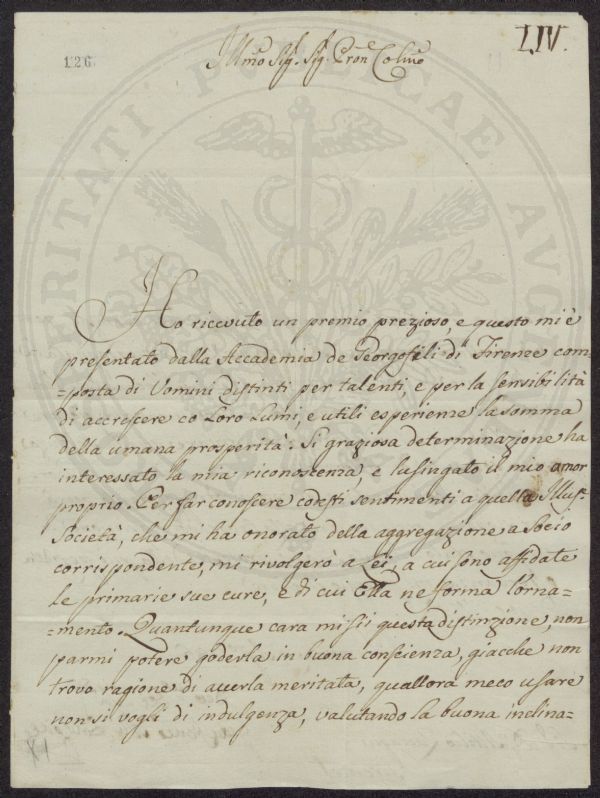 126
LIV.
Illmõ Sig.r Sig. Prõn Colmõ
Ho ricevuto un premio prezioso, e questo mi è
presentato dalla Accademia de Georgofili di Firenze com=
=posta di Uomini distinti per talenti, e per la sensibilità
di accrescere co Loro Lumi, e utili esperienze la somma
della umana prosperità. Si graziosa determinazione ha
interessato la mia riconoscenza, e lusingato il mio amor
proprio. Per far conoscere codesti sentimenti a quella Illust:
Società, che mi ha onorato della aggregazione a Socio
corrispondente, mi rivolgerò a Lei, a cui sono affidate
le primarie sue cure, e di cui Ella ne forma l'orna=
=mento. Quantunque cara mi sii questa distinzione, non
parmi potere goderla in buona conscienza, giacche non
trovo ragione di averla meritata, quallora meco usare
non si vogli di indulgenza, valutando la buona inclina=
VERITATI PUBLICAE AVOE